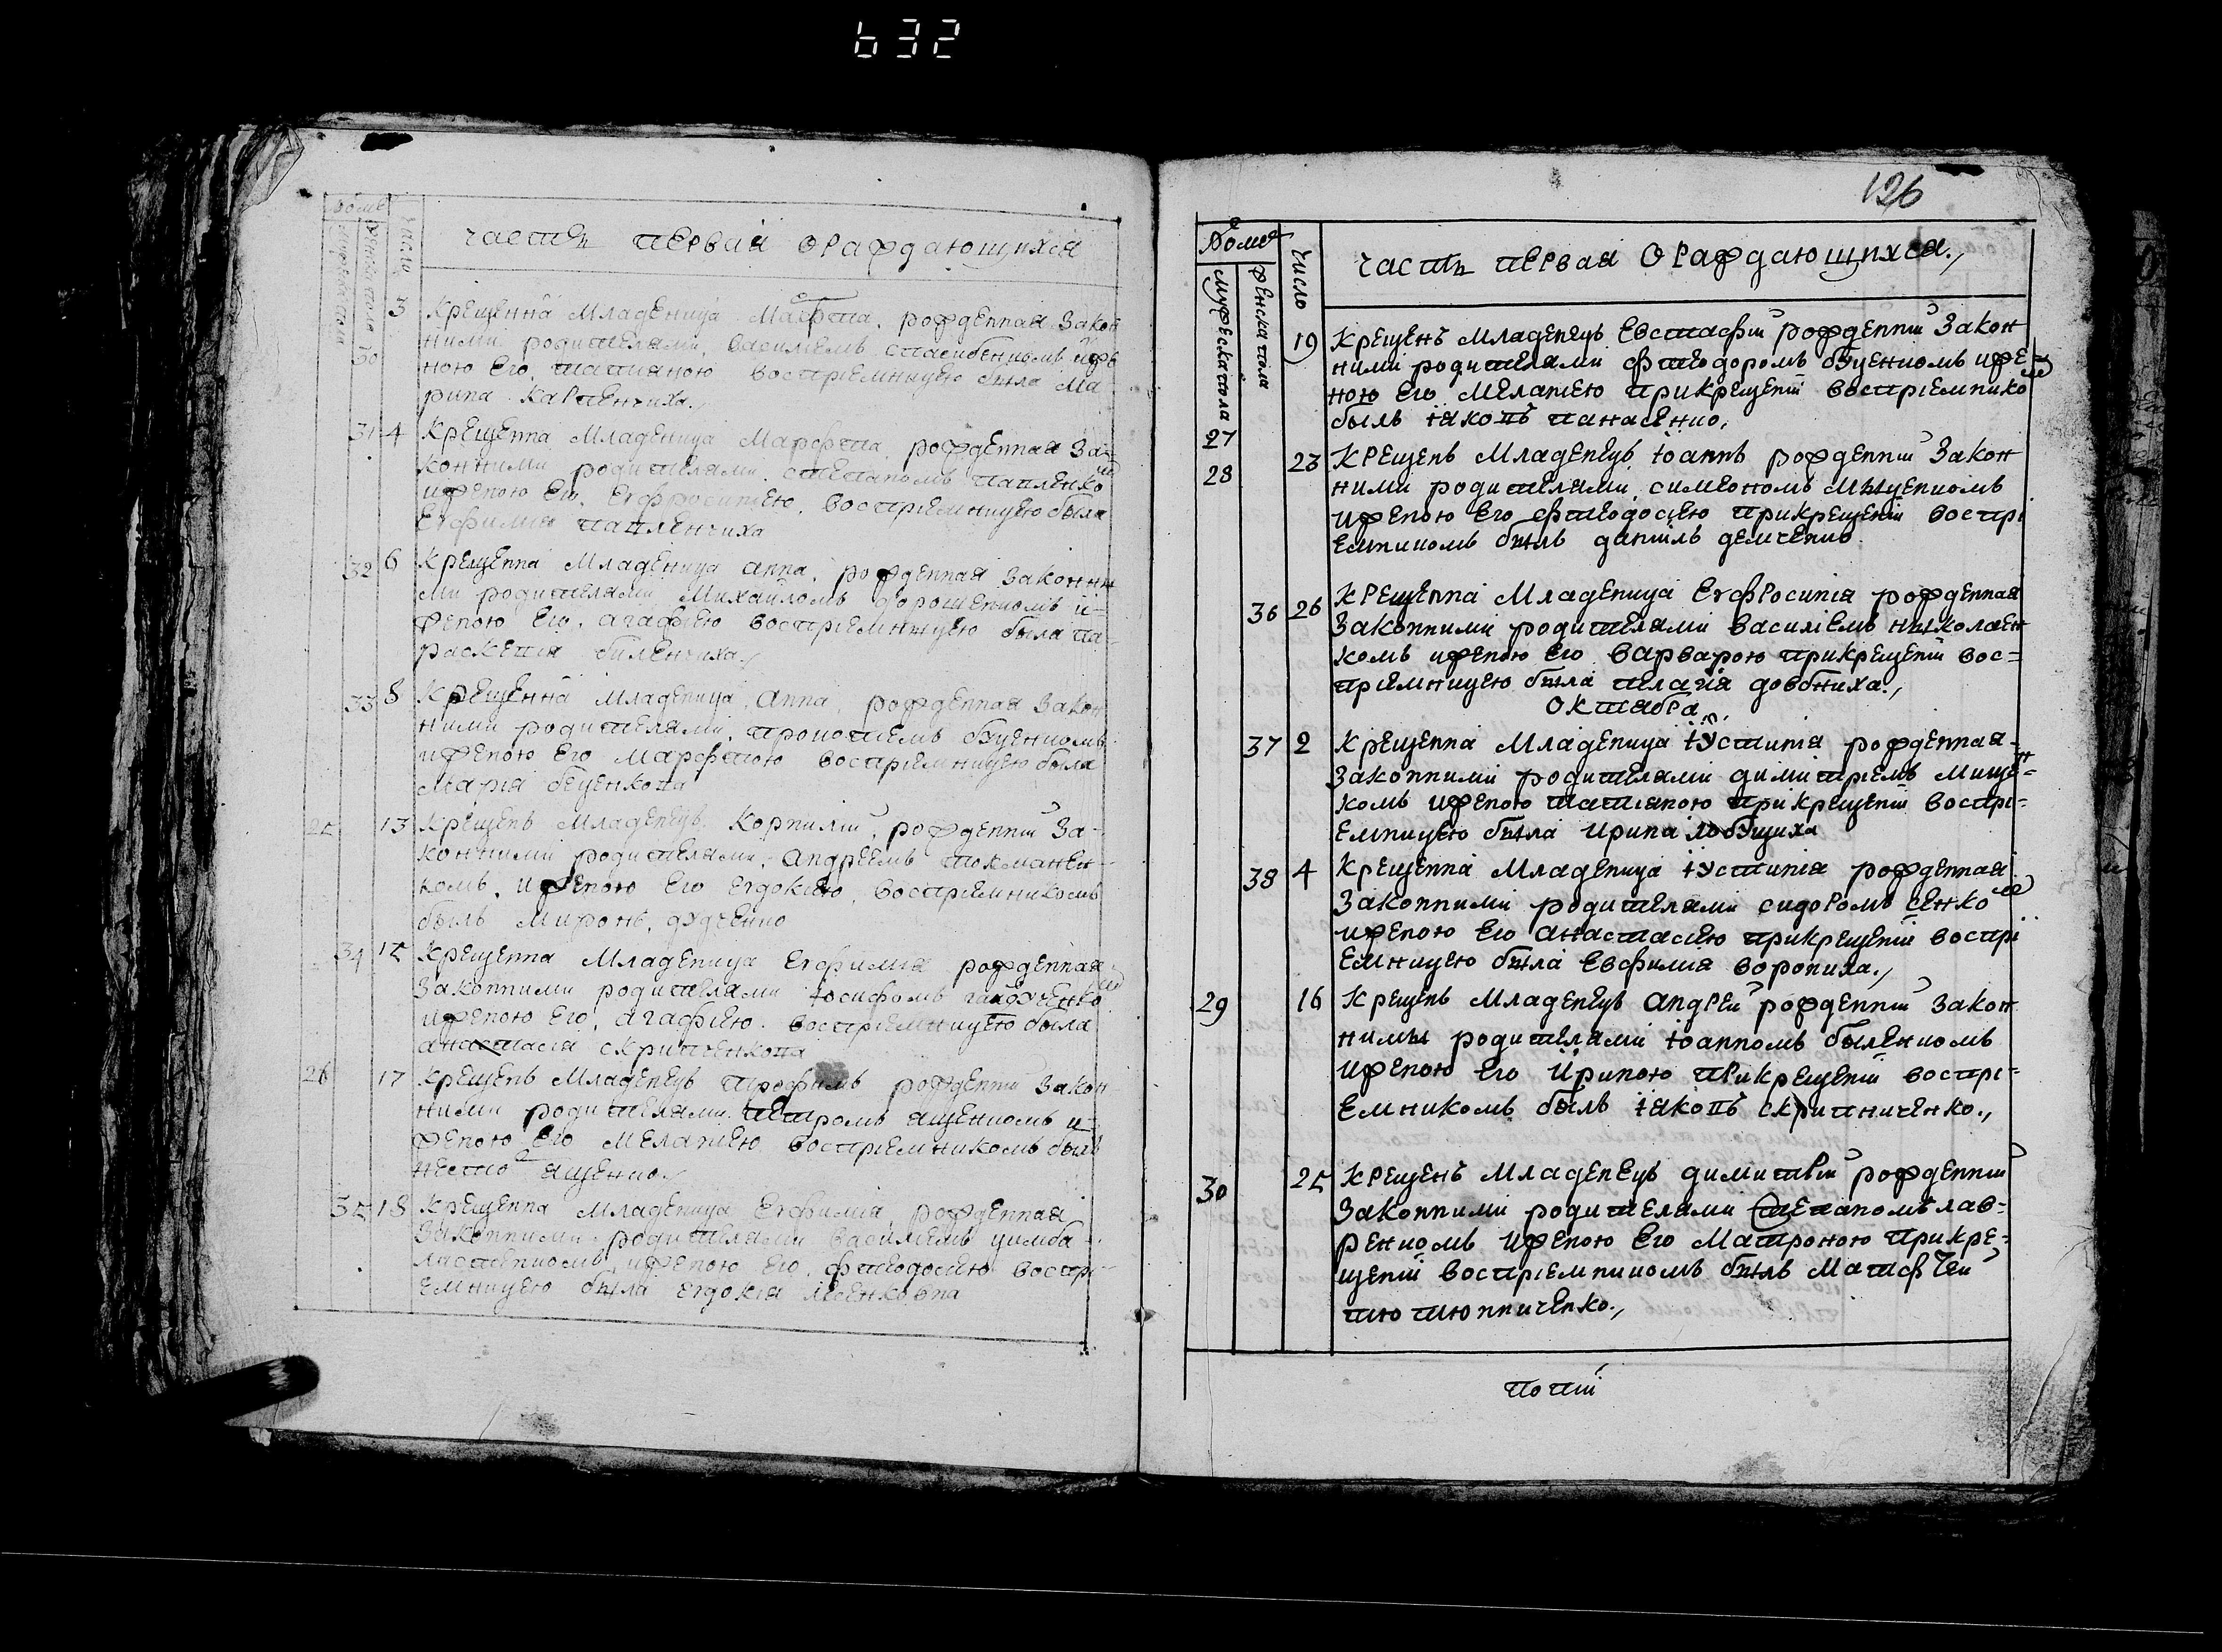 632
Часть первая о раждающихся
число
3 Крещенна младеница Марфа, рожденная закон
ними родителями, василиемъ спасибенкомъ иже
ною его, татианою восприемницею была Ма-
рина Карпенчиха.
30
31 4 Крещенна младеница Марфа, рожденная за-
конними родителями, степаномъ павленко
иженою его, Егфросиниею, восприемницею была
Егфимия павленчиха
32 6 Крещенна младеница анна, рожденная законны
ми родителями Михаиломъ дорошенкомъ и-
женою его, агафиею восприемницею была па-
раскевия биленчиха.
33 8 Крещенна младеница, Анна, рожденная закон
ними родителями, прокопиемъ буценкомъ
иженою его Марфою восприемницею была
Мария
25 13 Крещенъ младенецъ, Корнилий, рожденний за-
конними родителями, андреемъ токманен-
комъ, иженою его егдокиею, восприемникомъ
былъ Миронъ, дудченко
34 15 Крещенна младеница Егфимия рожденная
законними родителями иосифомъ гайдученко
иженою его, агафиею. восприемницею была
анастасия скрипченкова
26 17 Крещенъ младенецъ трофимъ рожденний закон
ними родителями петромъ ященкомъ и-
женою его меланиею восприемникомъ былъ
несторъ ященко.
35 18 Крещенна младеница Егфимия, рожденная
законними родителями василиемъ цимба
листенкомъ, иженою его, феодосиею воспри-
емницею была егдокия лесенковна
126
число
мужеска пола
женска пола
Часть первая о раждающихся.
19 Крещенъ младенецъ Евстафий рожденний закон
ними родителями феодоромъ буценкомъ иже-
ною его меланиею прикрещении восприемнико
былъ иаковъ панасенко.
27
28 23 Крещенъ младенецъ, иоаннъ рожденний закон
ними родителями, симеономъ мыценкомъ
иженою его феодосиею прикрещении воспри
емникомъ былъ даниилъ демченко
36 26 Крещенна младеница Егфросиния рожденная
законними родителями василиемъ николаен
комъ иженою его варварою прикрещении вос=
приемницею была пелагия довбниха.
Октября
37 2 Крещенна младеница иустиния рожденная
законними родителями димитриемъ мище=
комъ иженою татианою прикрещении воспри=
емницею была ирина лобущиха
38 4 Крещенна младеница иустиния рожденная
законними родителями сидоромъ сенко
иженою его анастасиею прикрещении воспри
емницею была евфимия ворониха.
29 16 Крещенъ младенецъ андрей рожденний закон
нимы родителями иоанномъ быленкомъ
иженою его ириною прикрещении воспри=
емникомъ былъ иаковъ скрипниченко.
30 25 Крещенъ младенецъ димитрий рожденний
законними родителями степаномъ лав=
ренкомъ иженою его матроною прикре=
щении восприемникомъ былъ матфей
тютюнниченко.
попий